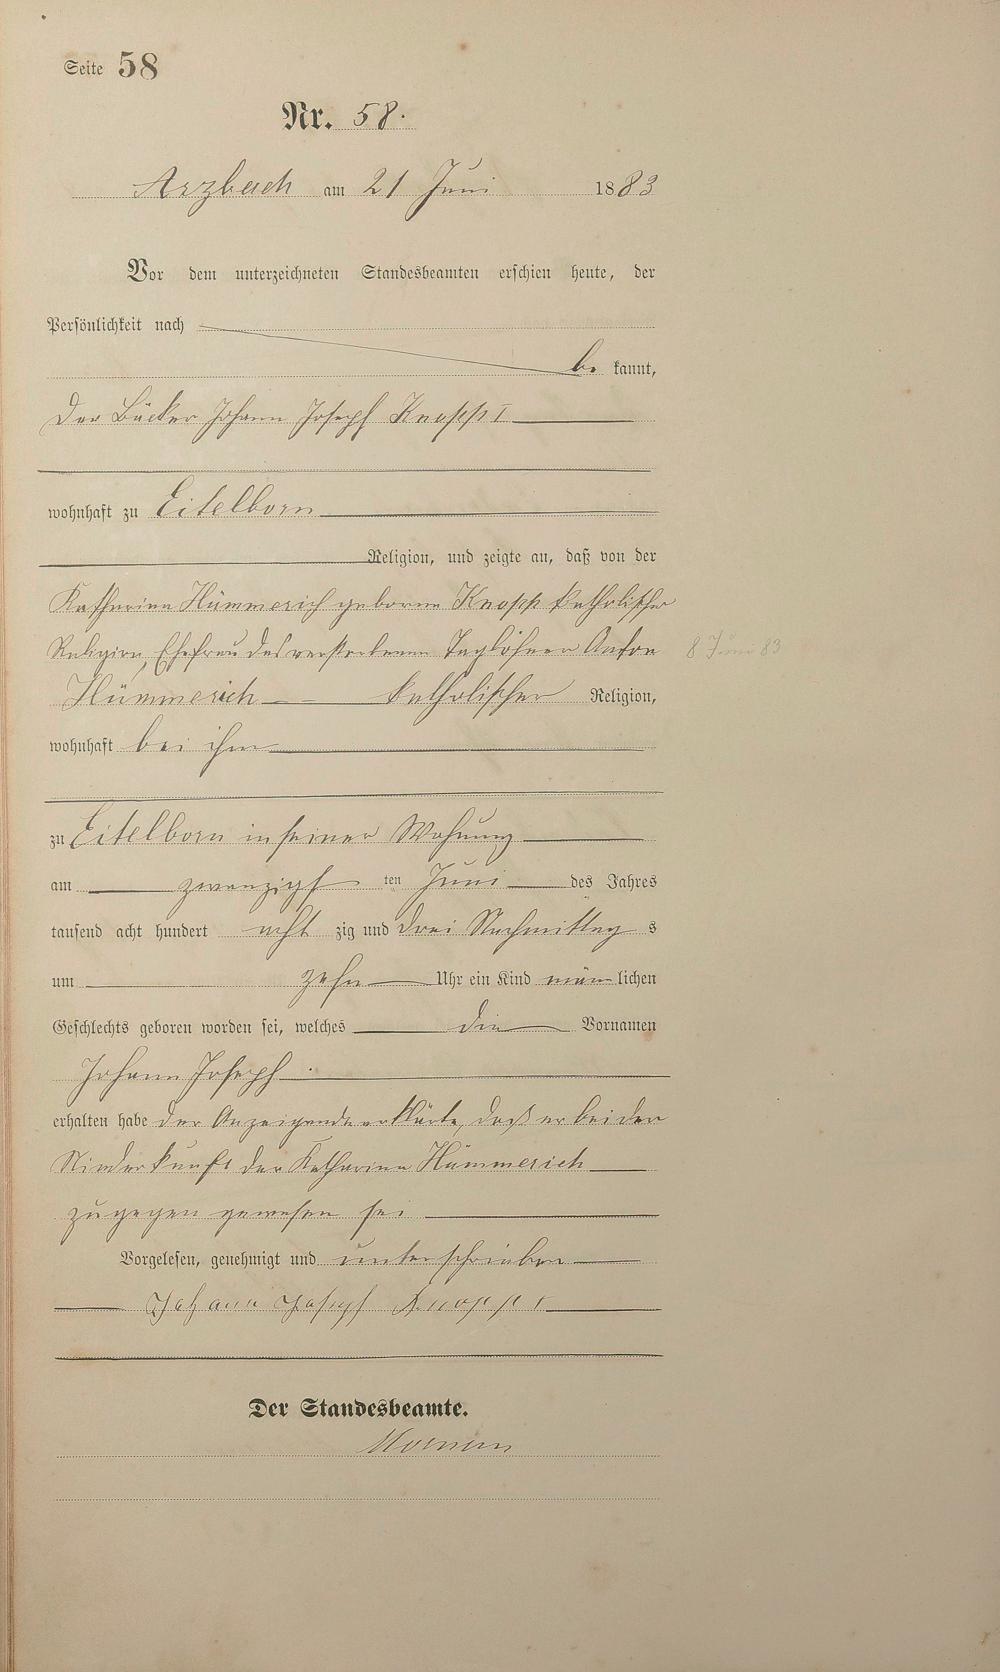 Seite 58
Nr. 58.
Arzbach am 21 Juni 1883
Vor dem unterzeichneten Standesbeamten erschien heute, der
Persönlichkeit nach
be kannt,
der Bäcker Johann Joseph Knopp I
wohnhaft zu Eitelborn
Religion, und zeigte an, daß von der
Katharina Hümmerich geborene Knopp katholischer
Religion, Ehefrau des verstorbenen Taglöhner Anton
8 Juni 83
Hümmerich katholischer Religion,
wohnhaft bei ihm
zu Eitelborn in seiner Wohnung
am zwanzigst ten Juni des Jahres
tausend acht hundert acht zig und drei Nachmittag s
um zehn Uhr ein Kind männlichen
Geschlechts geboren worden sei, welches die Vornamen
Johann Joseph
erhalten habe der Anzeigende erklärte, daß er bei der
Niederkunft der Katharina Hümmerich
zugegen gewesen sei
Vorgelesen, genehmigt und unterschrieben
Johann Joseph Knopp I
Der Standesbeamte.